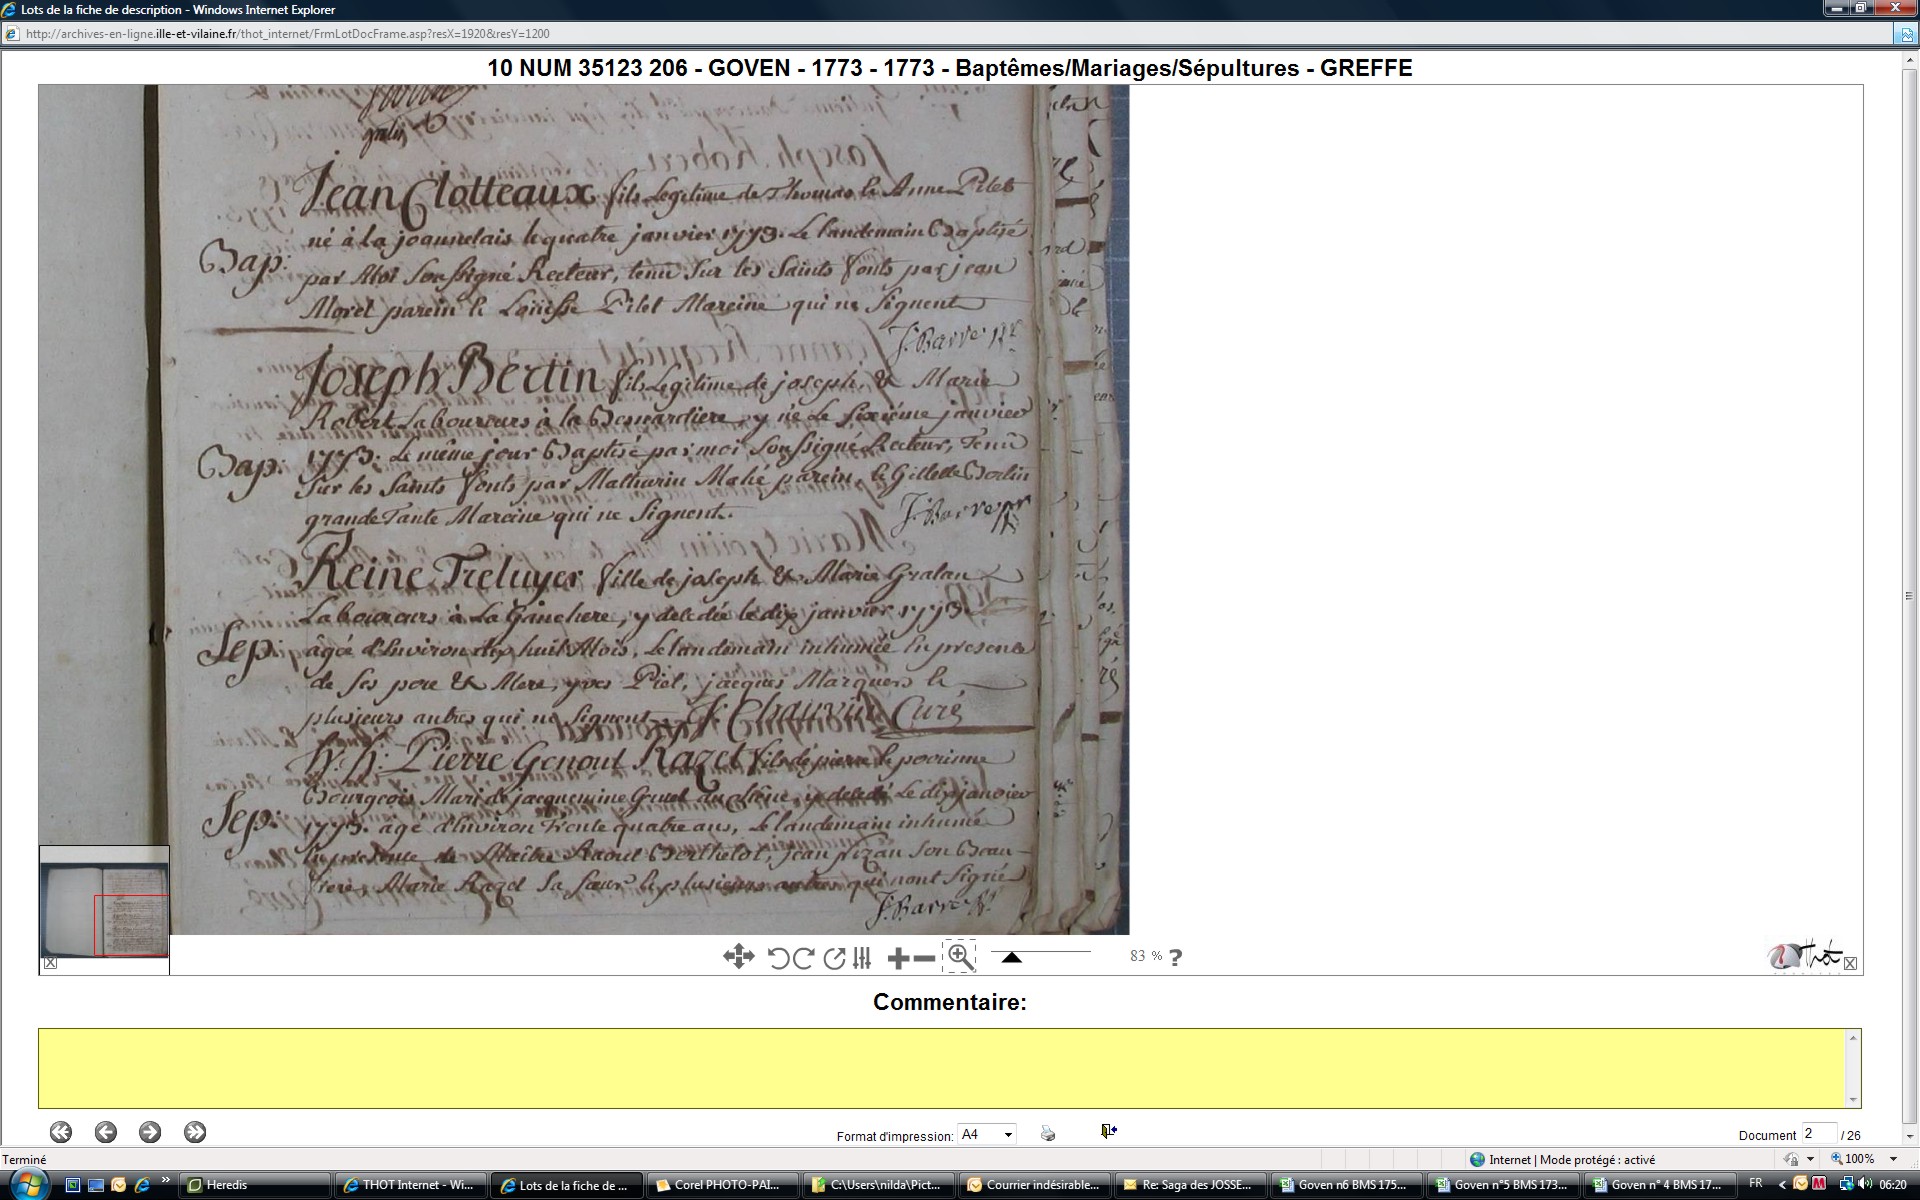 Lots de la fiche de description - Windows Internet Explorer
http://archives-en-ligne.ille-et-vilaine.fr/thot_internet/FrmLotDocFrame.asp?resX=1920&resY=1200
10 NUM 35123 206 - GOVEN - 1773 - 1773 - Baptêmes/Mariages/Sépultures - GREFFE
Jean Clotteaux fils Legitime de Thomas & Anne Pilet
né à la joannelais le quatre janvier 1773. Le landemain Baptisé
Bap:
par Moi Soussigné Recteur, tenu Sur les Saints fonts par jean
Moret parein & Loüisse Pilet Mareine qui ne Signent
J. Barre
Joseph Bertin fils Legitime de joseph, & Marie
Robert Laboureurs à la Besnardiere, y né Le sixiéme janvier
Bap:
1773. Le même jour Baptisé par moi Soussigné Recteur, Tenû
Sur les Saints fonts par Mathurin Mahé parein, & Gillette Bertin
grande Tante Mareine qui ne Signent.
J. Barre
Reine Treluyer fille de joseph & Marie Gralan
Laboureurs à La Ganchere, y decedée le dix janvier 1773
Sep:
âgée d'Environ dix huit Mois, Le landemain inhumée En presence
de Ses pere & Mere, yves Piel, jacques Marquers &
plusieurs autres qui ne Signent J. Chauvin Curé
H. h: Pierre Genoul Razet fils de pierre & perinne
Bourgeois Mari de jacquemine Gruel du Chêne, y decedé Le dix janvier
Sep:
1773. âgé d'Environ Trente quatre ans, Le landemain inhumé
En presence de Maître Raoul Berthelot, jean pizan Son Beau
frere, Marie Razet Sa Sœur & plusieurs autres qui nont Signé
J. Barre
83 % ?
Thot
Commentaire:
Format d'impression: A4
Document 2 / 26
Terminé
Internet | Mode protégé : activé
100%
Heredis
THOT Internet - Wi...
Lots de la fiche de ...
Corel PHOTO-PAI...
C:\Users\nilda\Pict...
Courrier indésirable...
Re: Saga des JOSSE...
Goven n6 BMS 175...
Goven n°5 BMS 173...
Goven n° 4 BMS 17...
FR
06:20